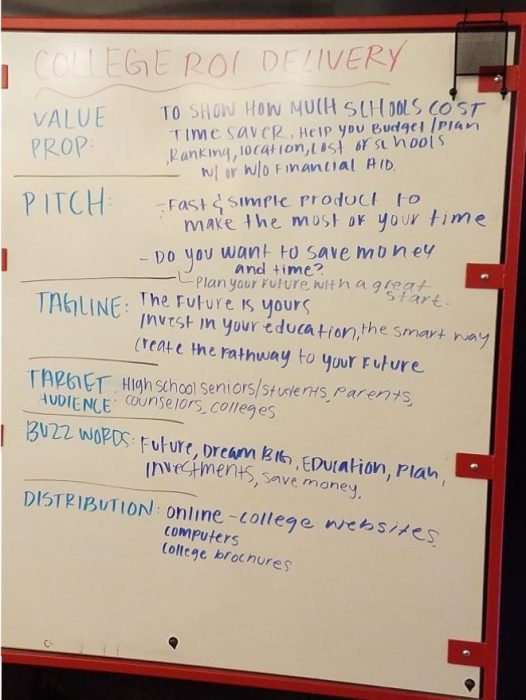 COLLEGE ROI DELIVERY
VALUE PROP:
TO SHOW HOW MUCH SCHOOLS COST
TIME SAVER, HELP YOU BUDGET/PLAN
RANKING, LOCATION, COST OF SCHOOLS
W/ OR W/O FINANCIAL AID.
PITCH:
- FAST & SIMPLE PRODUCT TO
MAKE THE MOST OF YOUR TIME
- DO YOU WANT TO SAVE MONEY
AND TIME?
PLAN YOUR FUTURE WITH A GREAT
START.
TAGLINE: THE FUTURE IS YOURS
INVEST IN YOUR EDUCATION, THE SMART WAY
CREATE THE PATHWAY TO YOUR FUTURE
TARGET AUDIENCE:
HIGH SCHOOL SENIORS/STUDENTS, PARENTS,
COUNSELORS, COLLEGES
BUZZ WORDS: FUTURE, DREAM BIG, EDUCATION, PLAN,
INVESTMENTS, SAVE MONEY.
DISTRIBUTION: ONLINE - COLLEGE WEBSITES,
COMPUTERS
COLLEGE BROCHURES